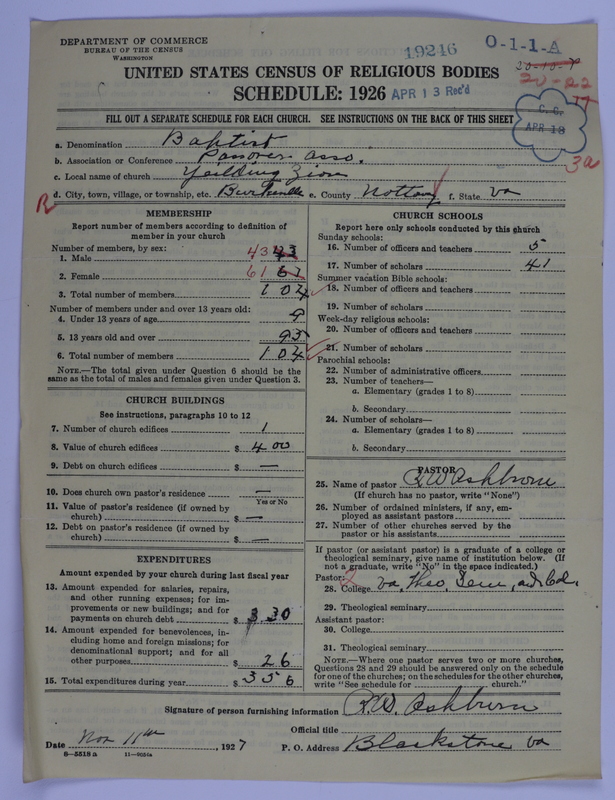 DEPARTMENT OF COMMERCE
BUREAU OF THE CENSUS
WASHINGTON
19246
O-1-1-A
20-22
UNITED STATES CENSUS OF RELIGIOUS BODIES
SCHEDULE: 1926 APR 13 Rec'd
C. C.
APR 18
3a
FILL OUT A SEPARATE SCHEDULE FOR EACH CHURCH. SEE INSTRUCTIONS ON THE BACK OF THIS SHEET
a. Denomination Baptist
b. Association or Conference Asso.
c. Local name of church Yeilding Zion
d. City, town, village, or township, etc. Burkeville e. County Nottoway f. State Va
R
MEMBERSHIP
Report number of members according to definition of member in your church
Number of members, by sex:
1. Male 43 43
2. Female 61 61
3. Total number of members 104
Number of members under and over 13 years old:
4. Under 13 years of age 9
5. 13 years old and over 95
6. Total number of members 104
NOTE.—The total given under Question 6 should be
same as the total of males and females given under Question 3.
CHURCH BUILDINGS
See instructions, paragraphs 10 to 12
7. Number of church edifices 1
8. Value of church edifices $ 400
9. Debt on church edifices $ —
10. Does church own pastor's residence —
Yes or No
11. Value of pastor's residence (if owned by
church) $ —
12. Debt on pastor's residence (if owned by
church) $ —
EXPENDITURES
Amount expended by your church during last fiscal year
13. Amount expended for salaries, repairs,
and other running expenses; for im-
provements or new buildings; and for
payments on church debt $ 330
14. Amount expended for benevolences, in-
cluding home and foreign missions; for
denominational support; and for all
other purposes $ 26
15. Total expenditures during year $ 356
CHURCH SCHOOLS
Report here only schools conducted by this church
Sunday schools:
16. Number of officers and teachers 5
17. Number of scholars 41
Summer vacation Bible schools:
18. Number of officers and teachers
19. Number of scholars
Week-day religious schools:
20. Number of officers and teachers
21. Number of scholars
Parochial schools:
22. Number of administrative officers
23. Number of teachers—
a. Elementary (grades 1 to 8)
b. Secondary
24. Number of scholars—
a. Elementary (grades 1 to 8)
b. Secondary
PASTOR
25. Name of pastor R W Ashburn
(If church has no pastor, write "None")
26. Number of ordained ministers, if any, em-
ployed as assistant pastors
27. Number of other churches served by the
pastor or his assistants
If pastor (or assistant pastor) is a graduate of a college or
theological seminary, give name of institution below. (If
not a graduate, write "No" in the space indicated.)
Pastor:
28. College Va, Theo, Sem, and Col.
29. Theological seminary
Assistant pastor:
30. College
31. Theological seminary
NOTE.—Where one pastor serves two or more churches,
Questions 28 and 29 should be answered only on the schedule
for one of the churches; on the schedules for the other churches,
write "See schedule for church."
Signature of person furnishing information R.W. Ashburn
Official title
Date Nov 11th, 1927 P. O. Address Blackstone Va
8—5518a 11—9054a